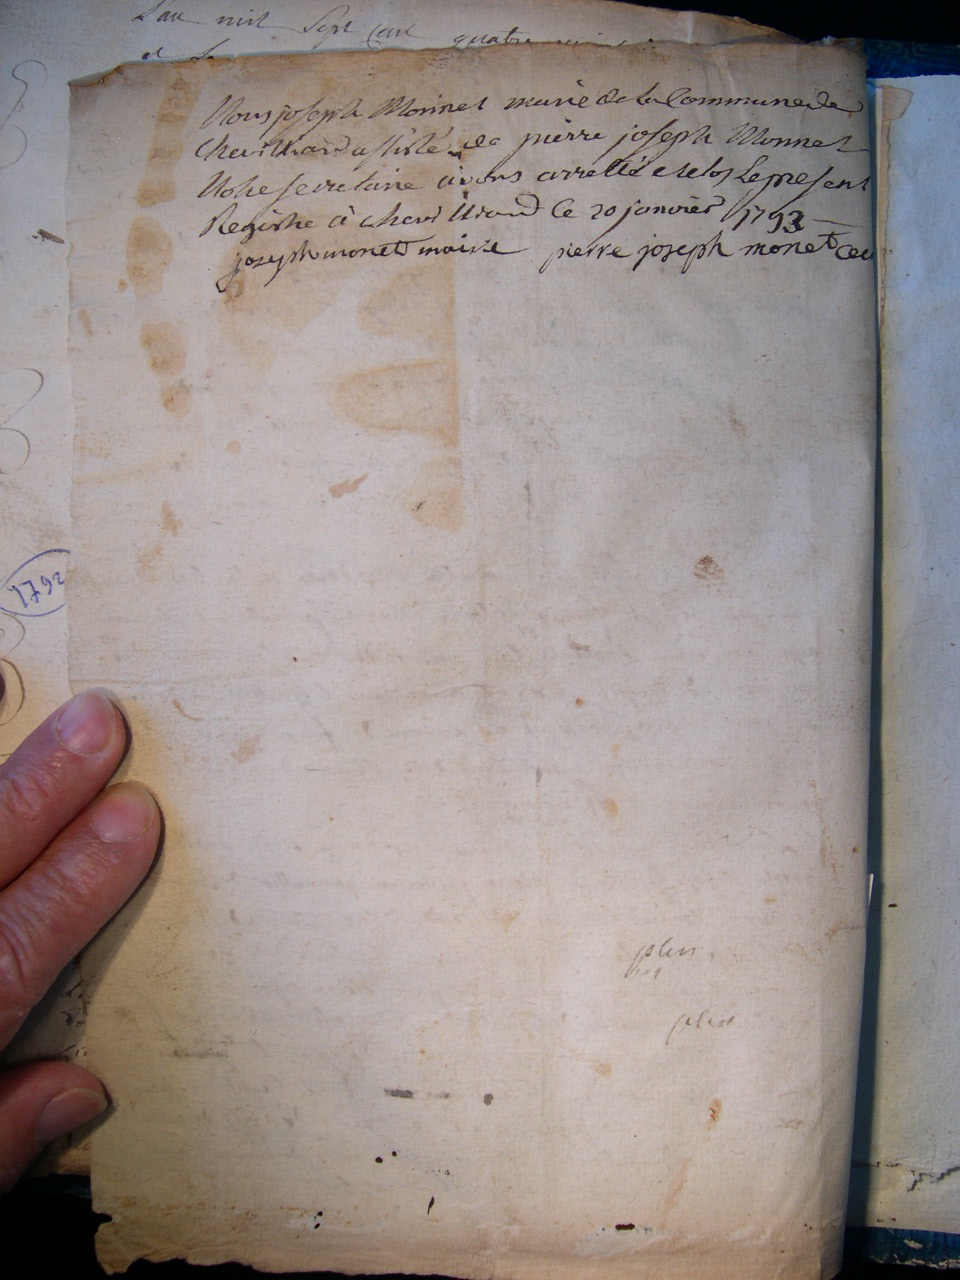 L'an mil Sept Cent quatre
Nous joseph Monnet maire de la Commune de
Chevilliard assisté de pierre joseph Monnet
Notre secretaire avons arretté et clos Le present
Registre à chevilliard Ce 20 janvier 1793
joseph monet maire pierre joseph monet
1792
plus
plus